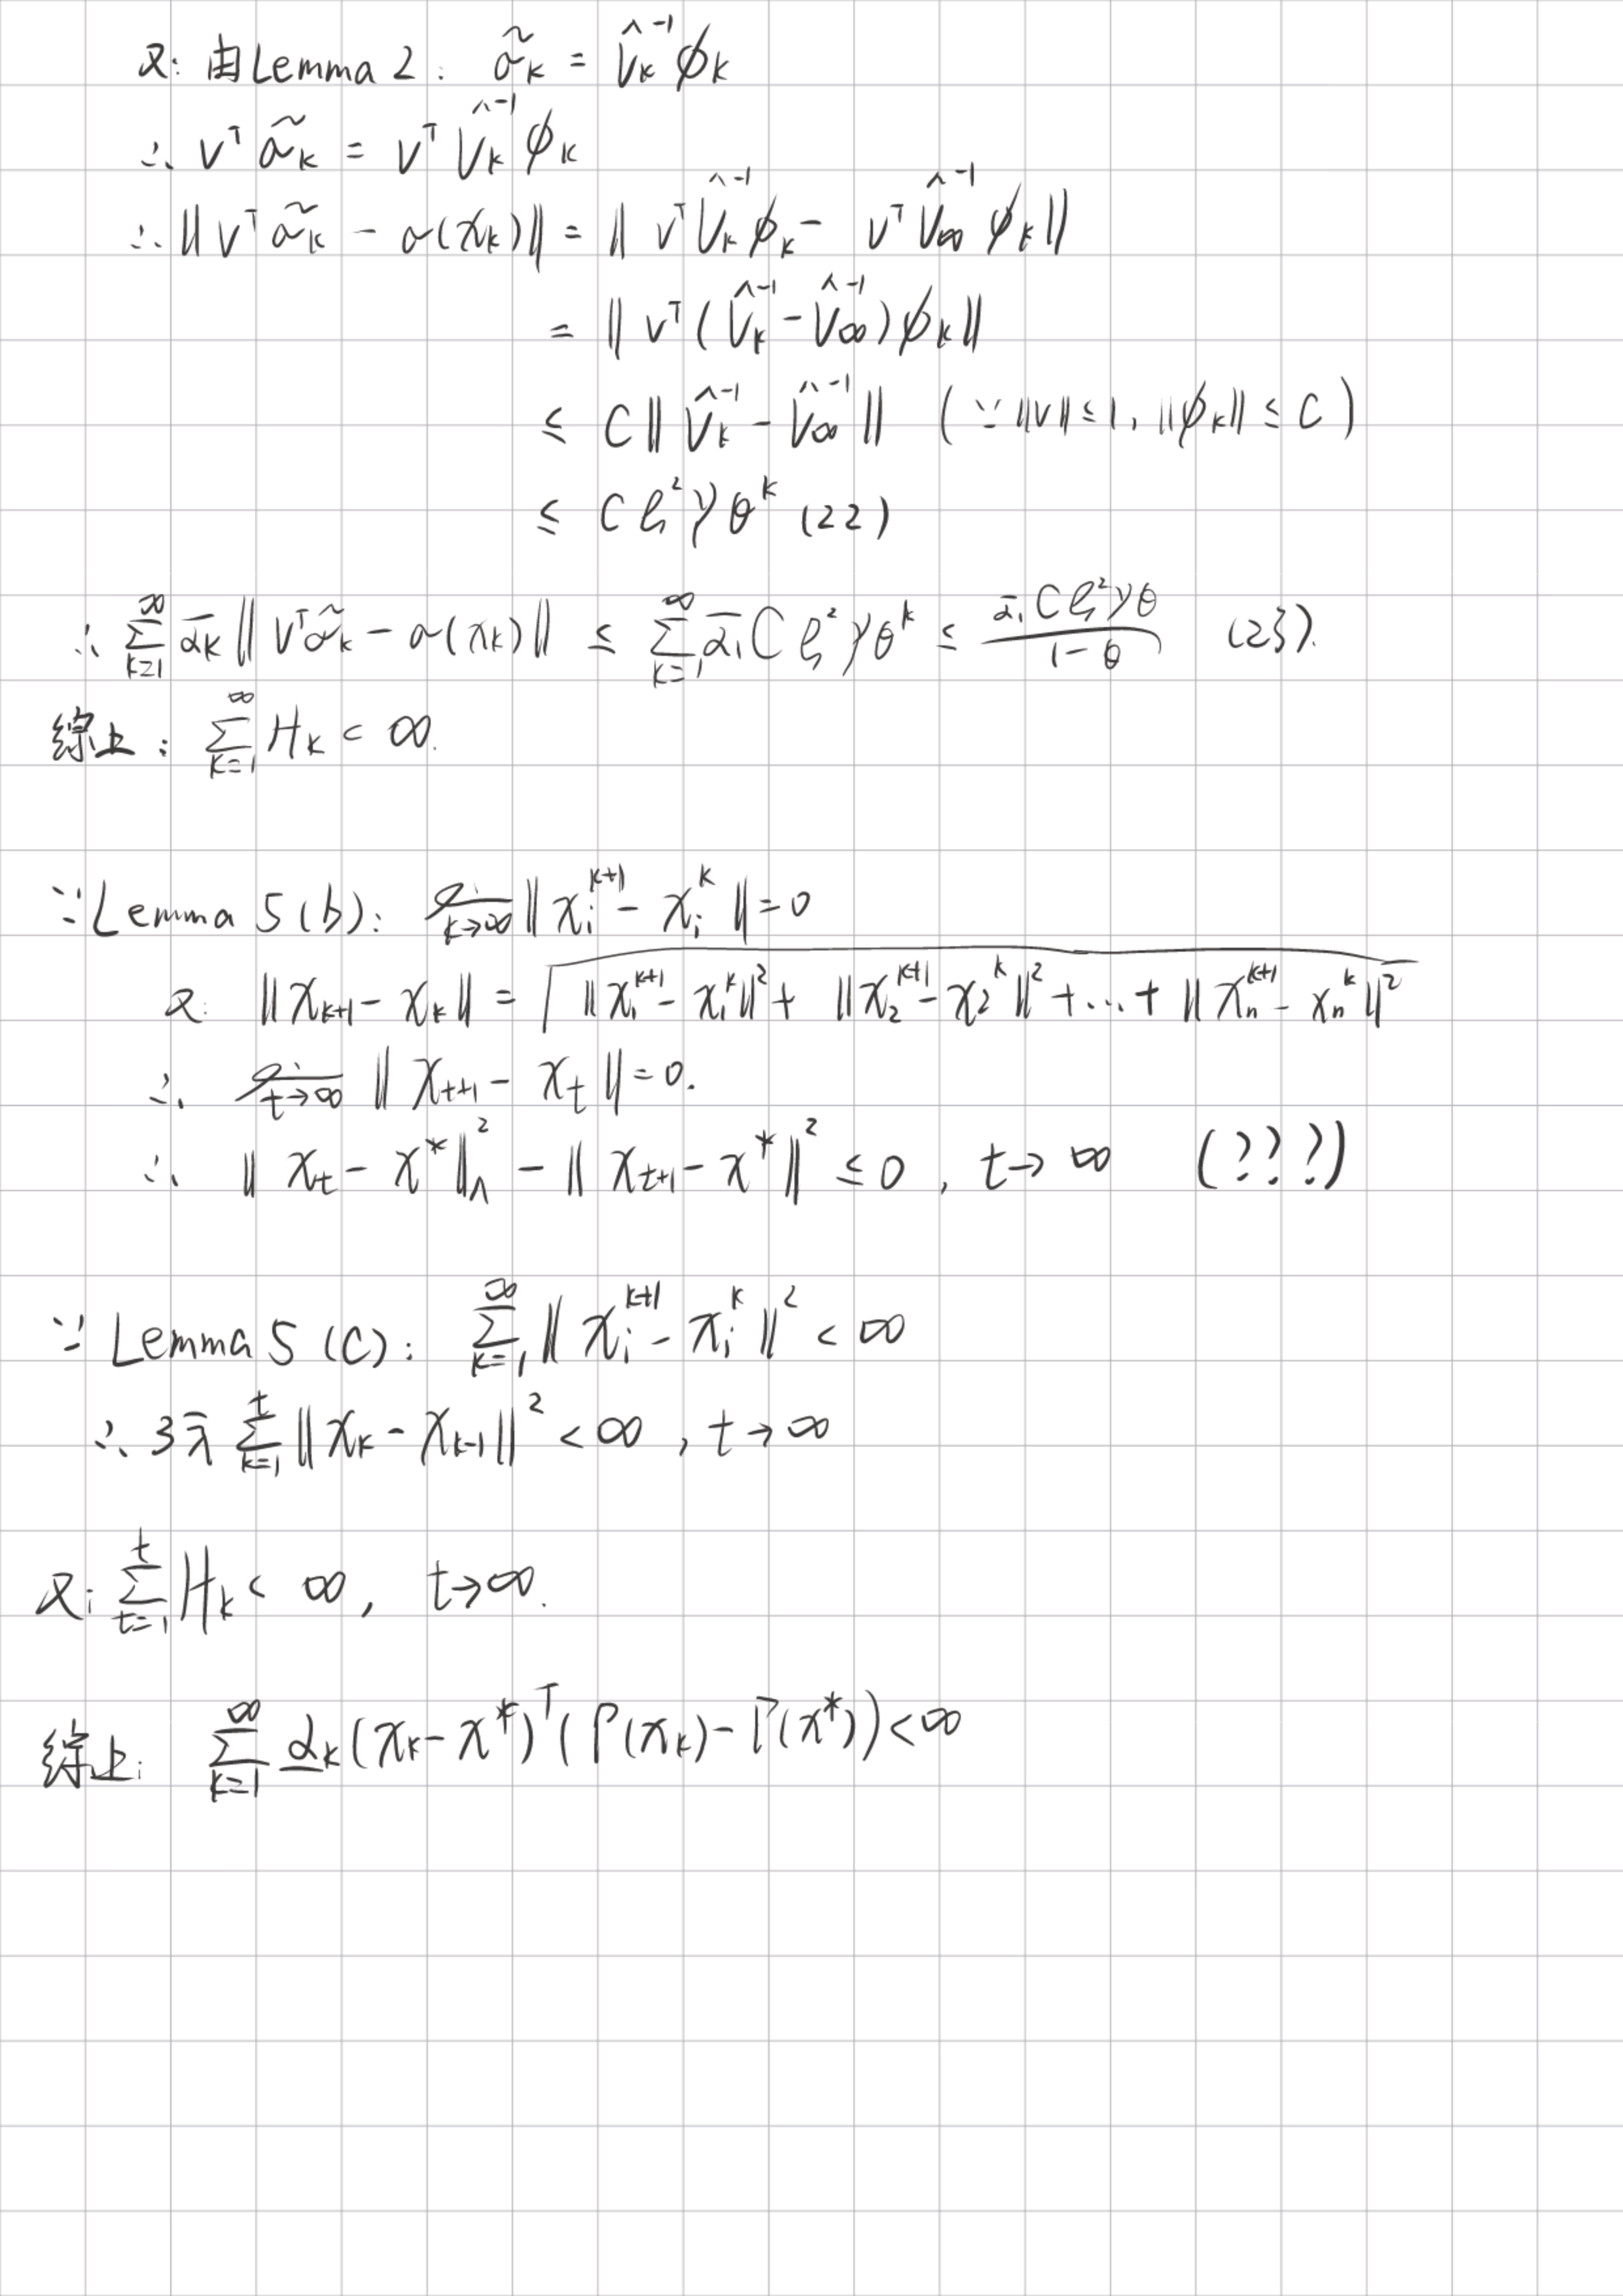 又: 由Lemma 2: σ̃_k = V̂_k^{-1} φ_k
∴ v^T σ̃_k = v^T V̂_k^{-1} φ_k
∴ ‖v^T σ̃_k − σ(x_k)‖ = ‖ v^T V̂_k^{-1} φ_k − v^T V̂_∞^{-1} φ_k ‖
= ‖ v^T ( V̂_k^{-1} − V̂_∞^{-1} ) φ_k ‖
≤ C ‖ V̂_k^{-1} − V̂_∞^{-1} ‖ (∵ ‖v‖ ≤ 1, ‖φ_k‖ ≤ C)
≤ C ξ^2 γ θ^k (22)
∴ Σ_{k=1}^∞ ᾱ_k ‖ v^T σ̃_k − σ(x_k) ‖ ≤ Σ_{k=1}^∞ ᾱ_1 C ξ^2 γ θ^k ≤ (ᾱ_1 C ξ^2 γ θ)/(1−θ) (23).
综上: Σ_{k=1}^∞ H_k < ∞.
∵ Lemma 5 (b): lim_{k→∞} ‖ x_i^{k+1} − x_i^k ‖ = 0
又: ‖ x_{k+1} − x_k ‖ = √( ‖x_1^{k+1} − x_1^k‖^2 + ‖x_2^{k+1} − x_2^k‖^2 + ... + ‖x_n^{k+1} − x_n^k‖^2 )
∴ lim_{t→∞} ‖ x_{t+1} − x_t ‖ = 0.
∴ ‖ x_t − x^* ‖_Λ^2 − ‖ x_{t+1} − x^* ‖^2 ≤ 0 , t→∞ (???)
∵ Lemma 5 (c): Σ_{k=1}^∞ ‖ x_i^{k+1} − x_i^k ‖^2 < ∞
∴ 3λ̄ Σ_{k=1}^t ‖ x_k − x_{k-1} ‖^2 < ∞ , t→∞
又: Σ_{t=1}^t H_k < ∞, t→∞.
综上: Σ_{k=1}^∞ α̲_k (x_k − x^*)^T ( Γ(x_k) − Γ(x^*) ) < ∞